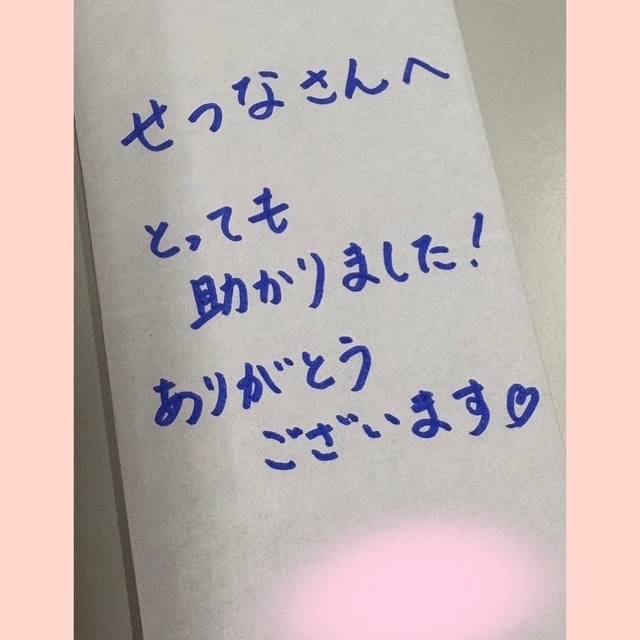 せつなさんへ
とっても
助かりました!
ありがとう
ございます♡